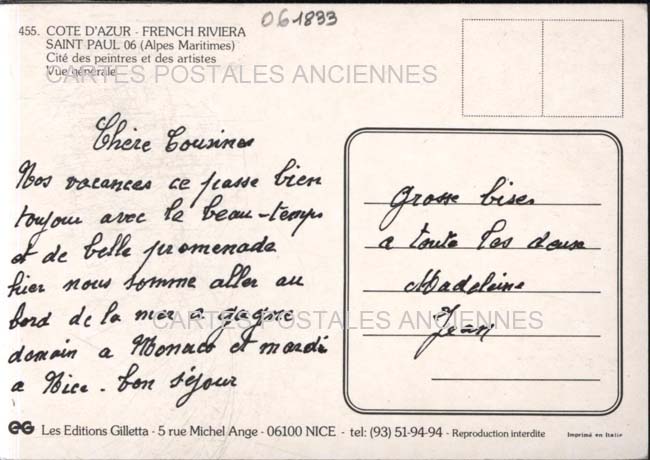 061833
455. COTE D'AZUR - FRENCH RIVIERA
SAINT PAUL 06 (Alpes Maritimes)
Cité des peintres et des artistes
Vue générale
CARTES POSTALES ANCIENNES
Chère Cousines
Nos vacances ce passe bien
toujour avec le beau-temps
et de belle promenade
hier nous somme aller au
bord de la mer a gagne
domain a Monaco et mardi
a Nice. bon séjour
Grosse bises
a toute les deux
Madeleine
Jean
CARTES POSTALES ANCIENNES
EG Les Editions Gilletta - 5 rue Michel Ange - 06100 NICE - tel: (93) 51-94-94 - Reproduction interdite Imprimé en Italie